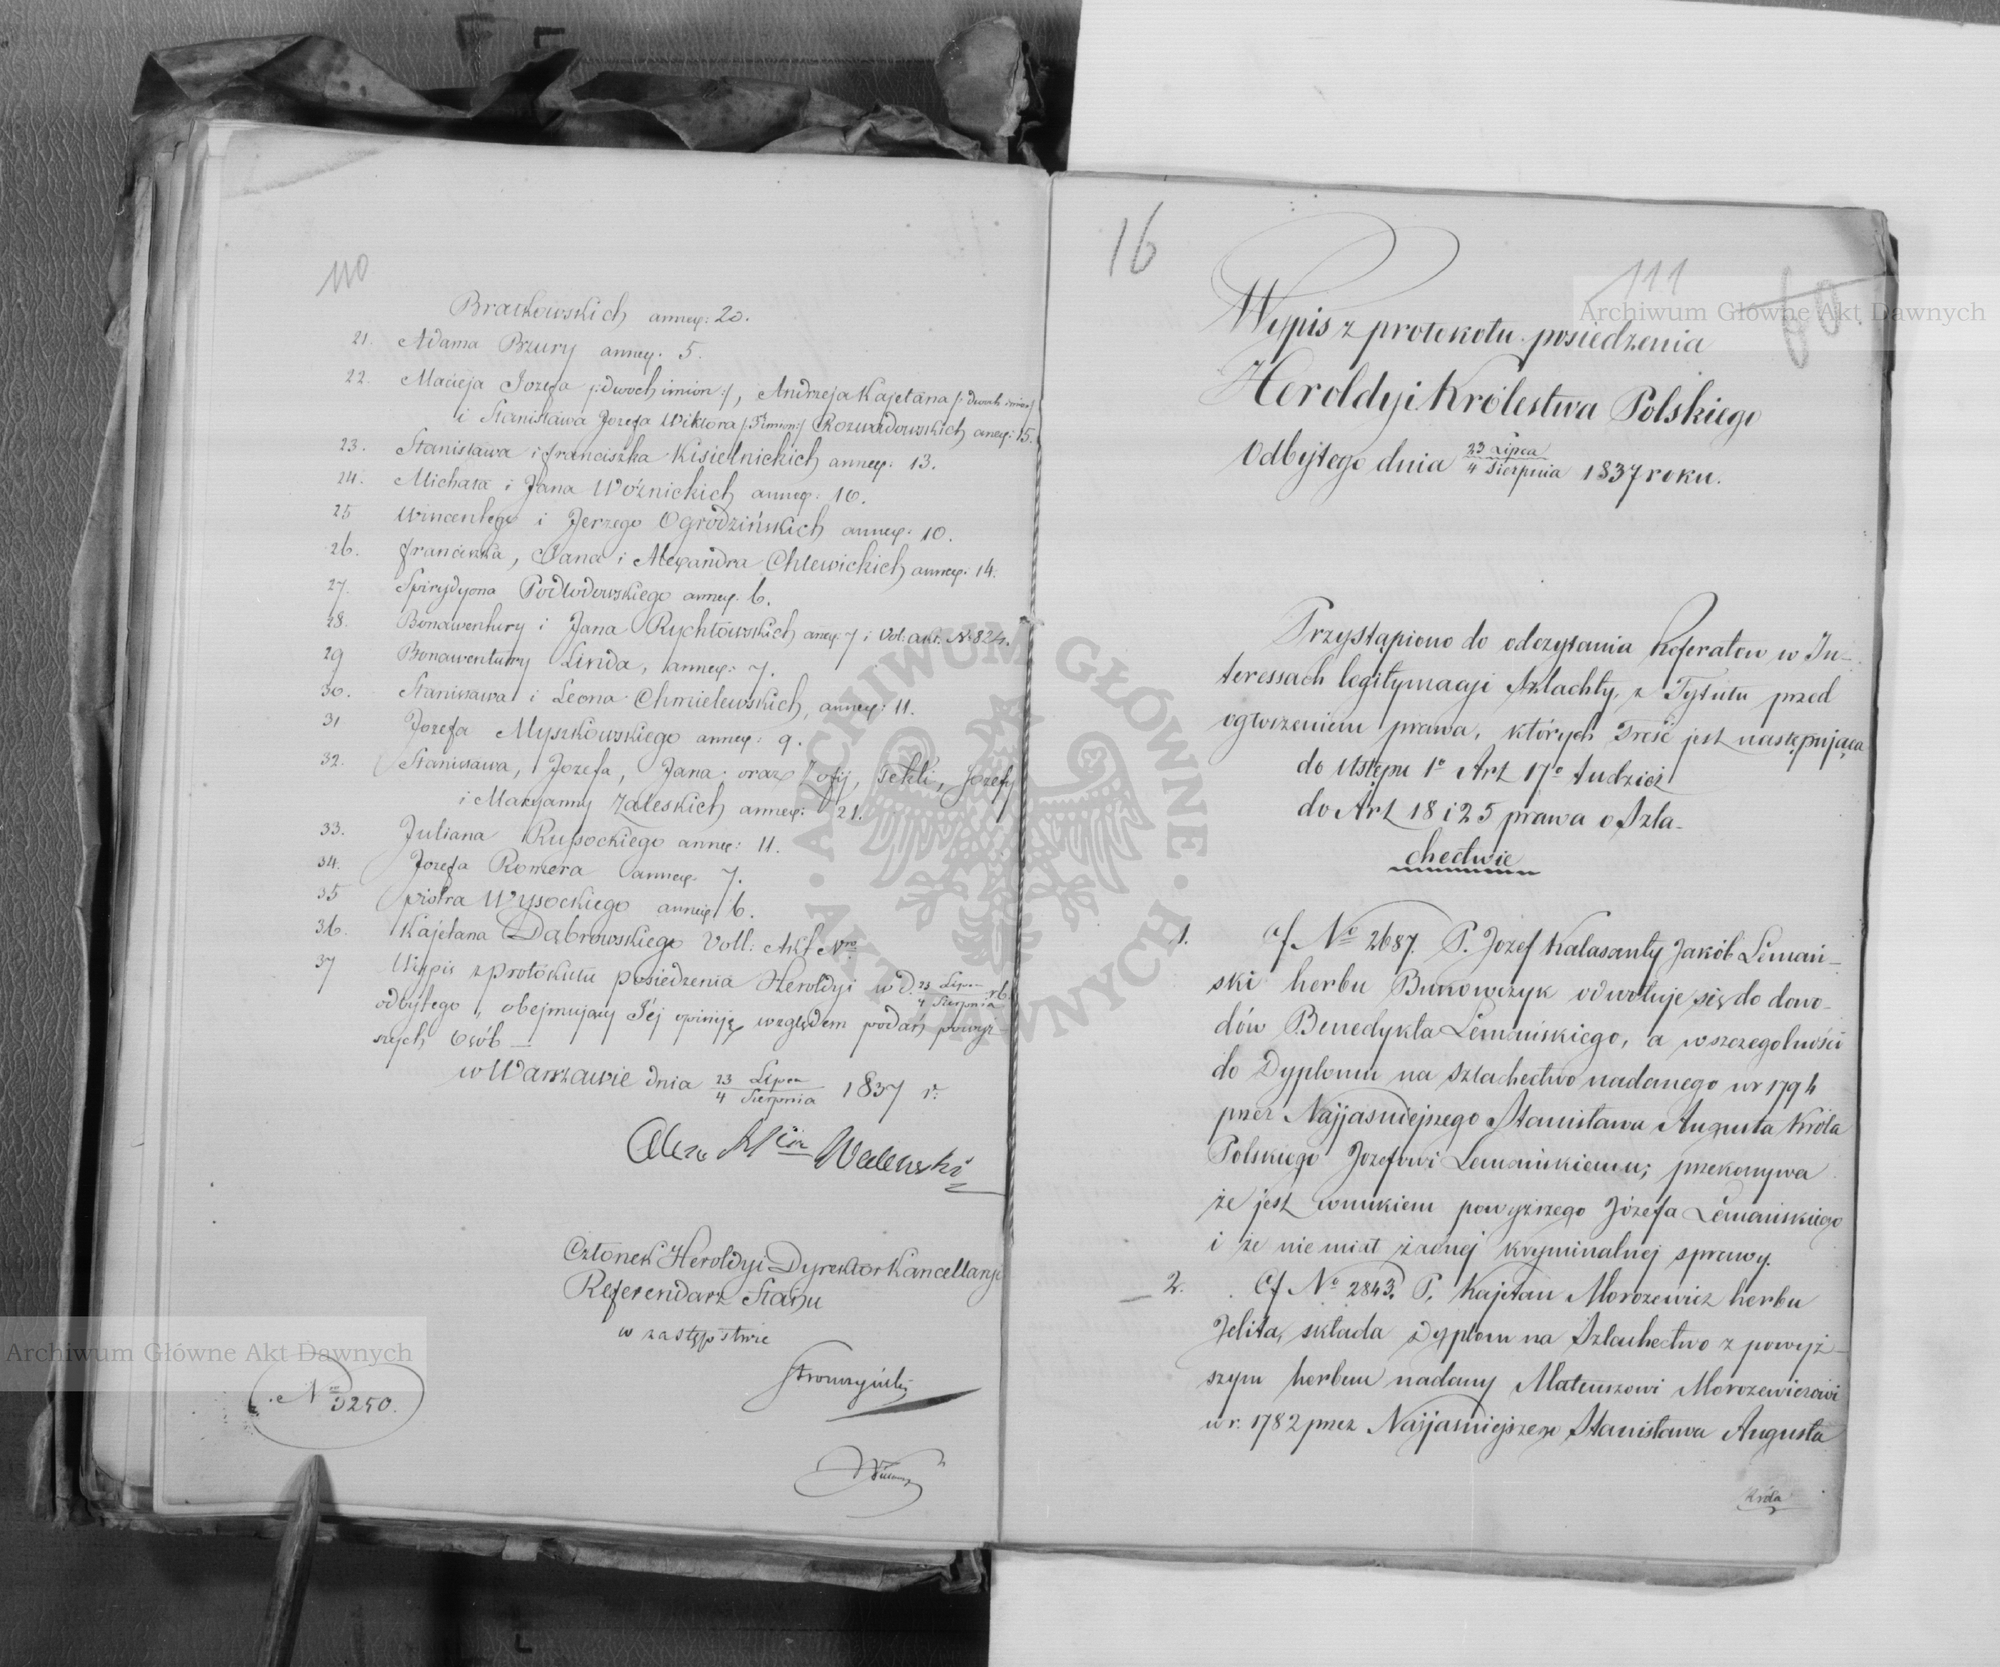 110
Braikowskich annex: 20.
21. Adama Bzury annex. 5.
22. Macieja Jozefa /: dwoch imion :/, Andrzeja Kajetana /: dwoch imion :/
i Stanisława Jozefa Wiktora /: 3 imion :/ Rozwadowskich anex: 15.
23. Stanisława i franciszka Kisielnickich annex: 13.
24. Michała i Jana Woźnickich annex: 16.
25 Wincentego i Jerzego Ogrodzińskich annex: 10.
26. franciszka, Jana i Alexandra Chlewickich annex: 14.
27. Spirydyona Podłodowskiego annex. 6.
28. Bonawentury i Jana Rychłowskich anex: 7 i Vol: akt. N. 824.
29 Bonawentury Linda, annex: 7.
30. Stanisława i Leona Chmielewskich, annex: 11.
31 Jozefa Myszkowskiego annex: 9.
32. Stanisława, Jozefa, Jana oraz Zofij, Tekli, Jozefy
i Maryanny Zaleskich annex: 21.
33. Juliana Russockiego annex: 11.
34. Jozefa Romera annex. 7.
35 piotra Wysockiego annex 6.
36. Kajetana Dąbrowskiego Voll: Akt Nro
37 Wypis z protókułu posiedzenia Heroldyi w d. 23 Lipca / 4 Sierpnia rb.
odbytego, obejmujący Jéj opiniję względem podań powyż-
szych Osób —
w Warszawie dnia 23 Lipca / 4 Sierpnia 1837 r.
Alex Walewski
Członek Heroldyi Dyrektor Kancellaryi
Referendarz Stanu
w zastępstwie
Stronczyński
N 3250.
16
111
60.
Wypis z protokołu posiedzenia
Heroldyi Królestwa Polskiego
Odbytego dnia 23 Lipca / 4 Sierpnia 1837 roku.
Przystąpiono do odczytania Referatow w In-
teressach legitymacyi Szlachty, z Tytułu przed
ogłoszeniem prawa, których Treść jest następująca
do Ustępu 1o Art 17o tudzież
do Art 18 i 25 prawa o Szla-
chectwie
1. Cf No 2687. P. Jozef Kalasanty Jakób Lemań-
ski herbu Bukowczyk odwołuje się do dowo-
dów Benedykta Lemańskiego, a w szczegolności
do Dyplomu na szlachectwo nadanego w r 1794
przez Najjasniejszego Stanisława Augusta Króla
Polskiego Jozefowi Lemańskiemu; przekonywa
że jest wnukiem powyższego Józefa Lemańskiego
i że nie miał żadnej kryminalnej sprawy.
2. Cf No 2843. P. Kajetan Morozewicz herbu
Jelita, składa dyplom na Szlachectwo z powyż-
szym herbem nadany Mateuszowi Morozewiczowi
w r. 1782 przez Najjasniejszego Stanisława Augusta
Króla
Archiwum Główne Akt Dawnych
Archiwum Główne Akt Dawnych
ARCHIWUM GŁÓWNE AKT DAWNYCH